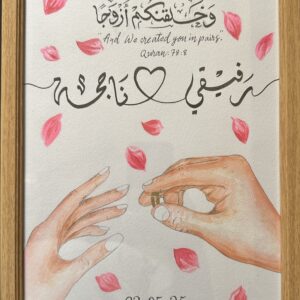 وَخَلَقْنَٰكُمْ أَزْوَٰجًا
"And We created you in pairs".
Quran: 78:8
رفيقي ناجحه